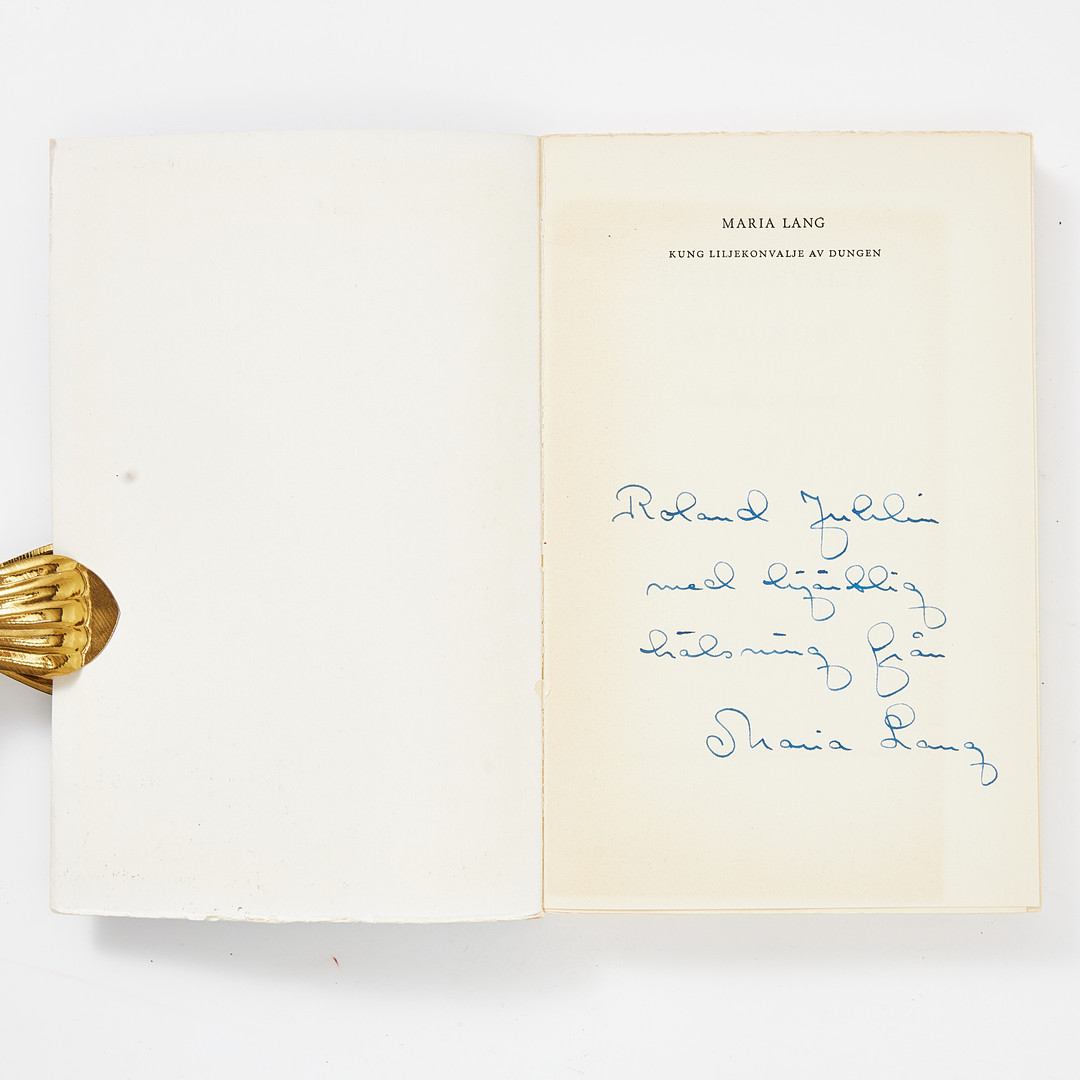 MARIA LANG
KUNG LILJEKONVALJE AV DUNGEN
Roland Juhlin
med hjärtlig
hälsning från
Maria Lang